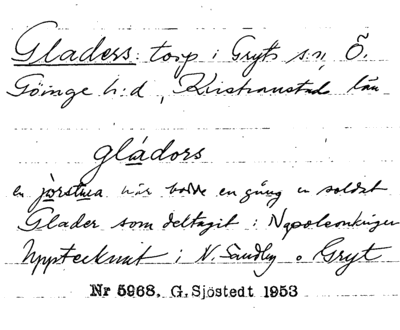 Gladers: torp i Gryts sn, Ö.
Göinge h:d, Kristianstads län
gládors
en jorstua när bodde en gång en soldat
Glader som deltagit i Napoleonkrigen
Upptecknat i N. Sandby o Gryt
Nr 5968. G. Sjöstedt 1953